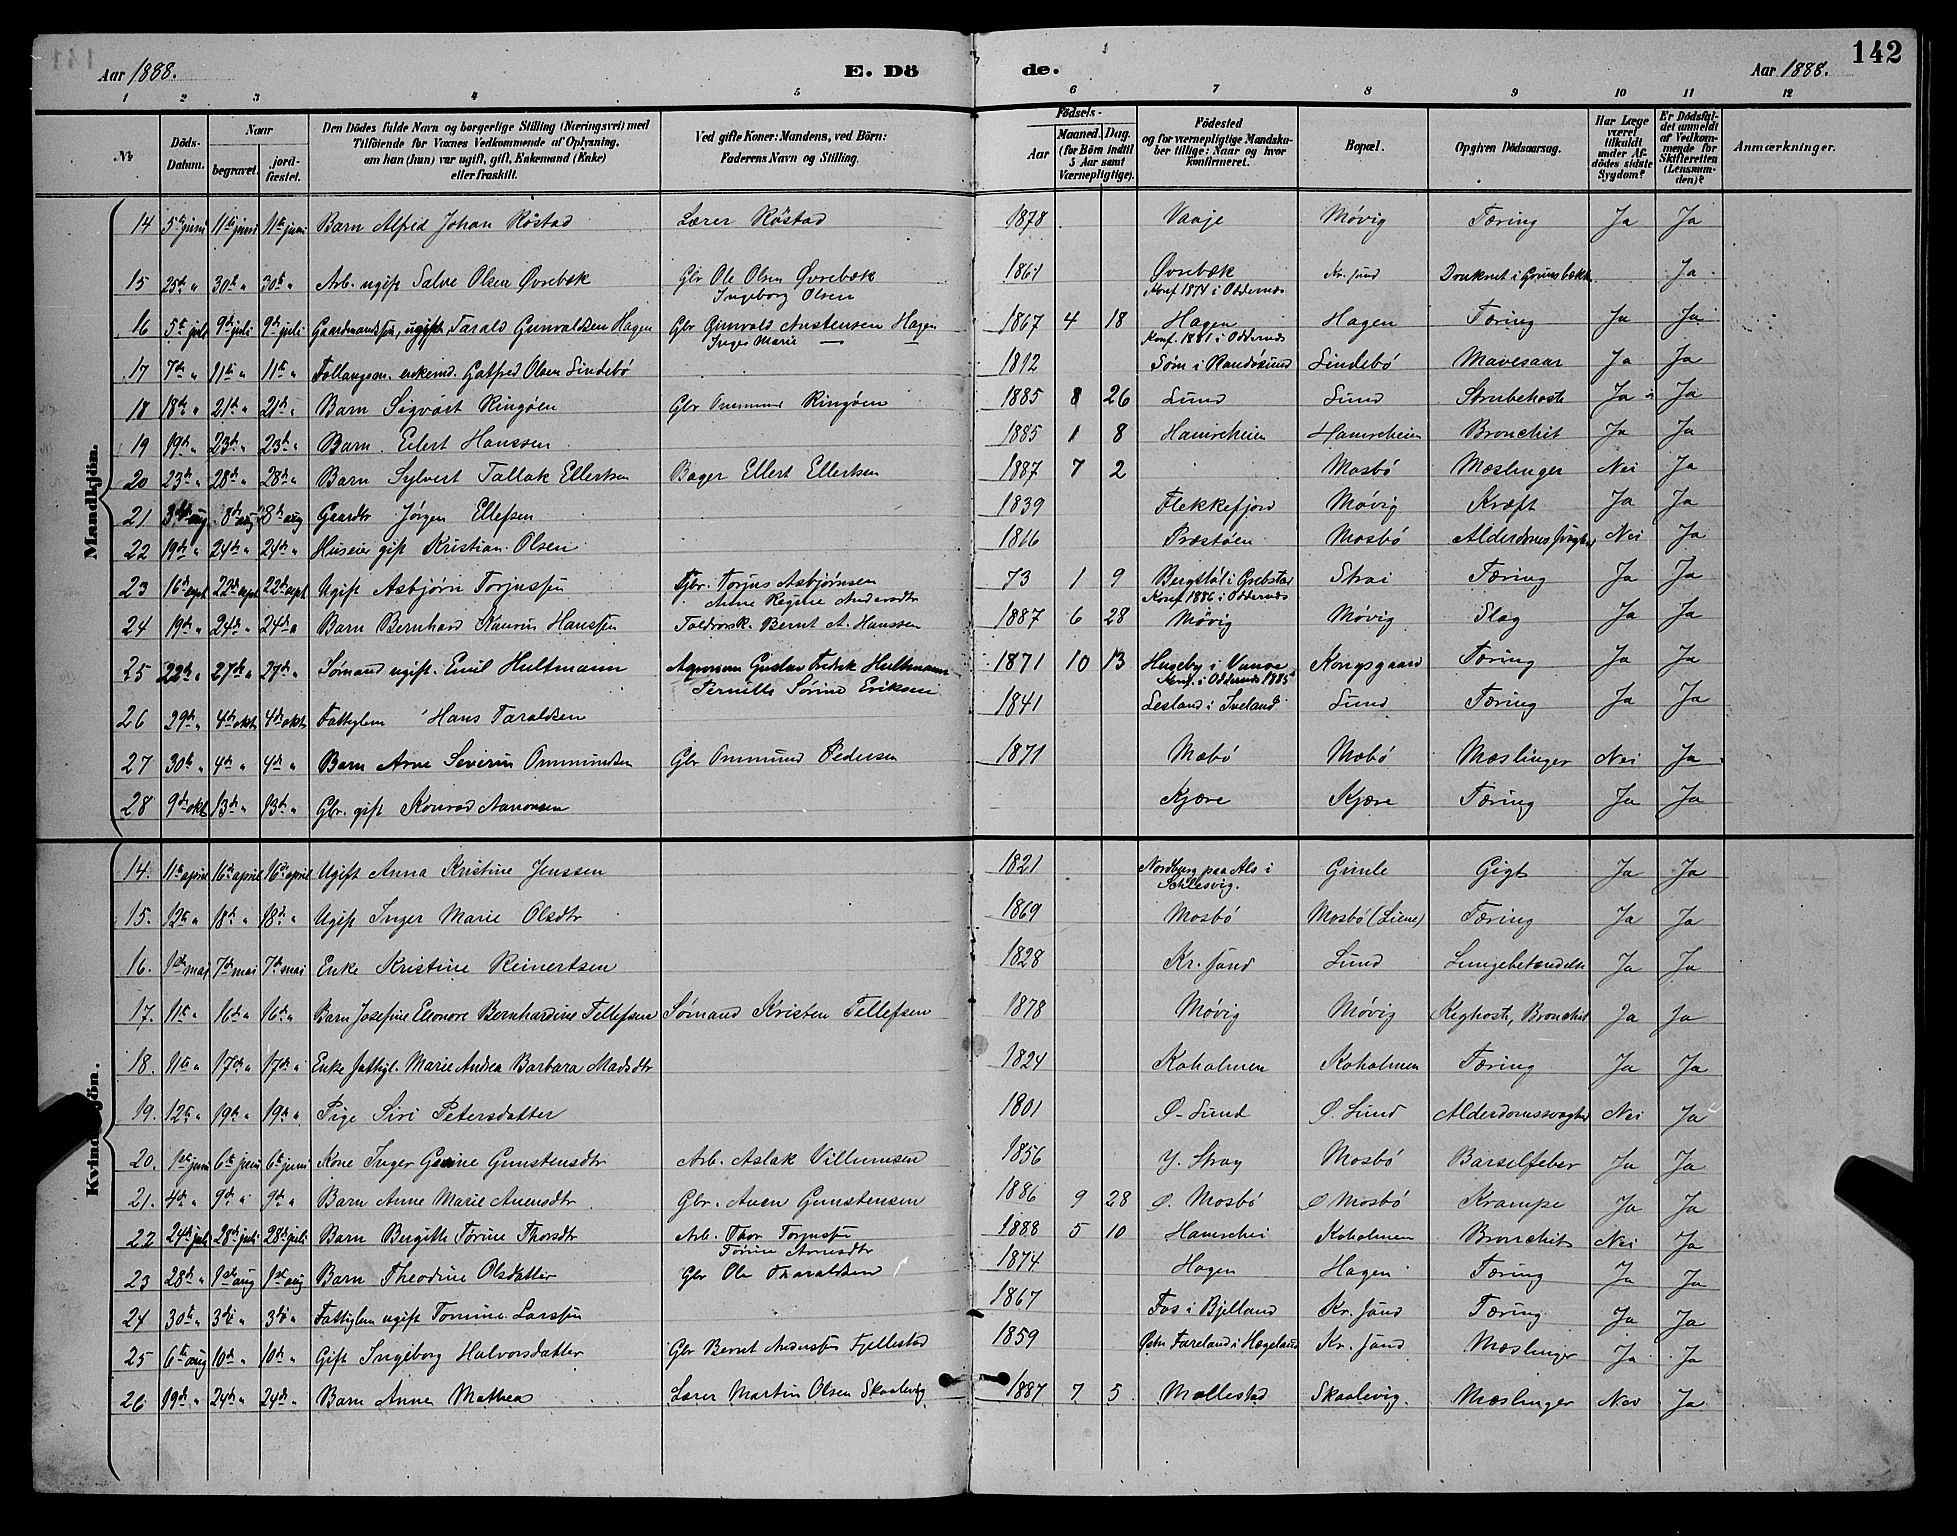 142
Aar 1888. E. Dö de. Aar 1888.
1 2 3 4 5 6 7 8 9 10 11 12
No. Döds-Datum. Naar begravet. jord-fæstet. Den Dödes fulde Navn og borgerlige Stilling (Næringsvei) med Tilföiende for Voxnes Vedkommende af Oplysning, om han (hun) var ugift, gift, Enkemand (Enke) eller fraskilt. Ved gifte Koner: Mandens, ved Börn: Faderens Navn og Stilling. Födsels- Aar Maaned. Dag. (for Börn indtil 5 Aar samt Værnepligtige). Födested og for værnepligtige Mandskaber tillige: Naar og hvor konfirmeret. Bopæl. Opgiven Dödsaarsag. Har Læge været tilkaldt under Afdödes sidste Sygdom? Er Dödsfaldet anmeldt af Vedkommende for Skifteretten (Lensmanden)? Anmærkninger.
Mandkjön.
14 5te juni 11te juni 11te juni Barn Alfred Johan Röstad Lærer Röstad 1878 Vaaje Møvig Tæring Ja Ja
15 25de " 30te " 30te " Arb. ugift Salve Olsen Øvrebæk Gbr Ole Olsen Øvrebæk 1861 Øvrebæk Kr.sund Druknet i Ja
Ingeborg Olsen Konf. 1874 i Oddernæs
16 5te juli 9de juli 9de juli Gaardmandssøn, ugift, Tarald Gunvaldsen Hagen Gbr Gunvald Austensen Hagen 1867 4 18 Hagen Hagen Tæring Ja Ja
Inger Marie — " Konf. 1881 i Oddernæs
17 7de " 11te " 11te " enkemd. Gotfred Olsen Lindebö 1812 Søm i Randøsund Lindebö Mavesaar Ja Ja
18 18de " 21de " 21de " Barn Sigvart Ringøen Gbr Ommund Ringøen 1885 8 26 Lund Lund Strubehoste Ja Ja
19 19de " 23de " 23de " Barn Eilert Hanssen 1885 1 8 Hamreheien Hamreheien Bronchit Ja Ja
20 23de " 28de " 28de " Barn Sylvert Tallak Ellertsen Bager Ellert Ellertsen 1887 7 2 Mosbö Mæslinger Nei Ja
21 3die aug 8de aug 8de aug Gaardbr Jørgen Ellefsen 1839 Flekkefjord Møvig Kræft Ja Ja
22 19de " 24de " 24de " Huseier gift Kristian Olsen 1816 Præstøen Mosbö Alderdomssvaghed Nei Ja
23 16de sept 22de sept 22de sept Ugift Asbjørn Torjussøn Gbr. Torjus Asbjørnsen 73 1 9 Bergstøl i Grebstad Strai Tæring Ja Ja
Anne Regine Andersdtr Konf. 1886 i Oddernæs
24 19de " 24de " 24de " Barn Bernhard Kaurin Hanssen Toldrorsk. Bernt A. Hanssen 1887 6 28 Møvig Møvig Slag Ja Ja
25 22de " 27de " 27de " Sømand ugift. Emil Hultmann Agronom Gustav Fredrik Hultmann 1871 10 13 Hugeby i Vanse Kongsgaard Tæring Ja Ja
Pernille Sørine Eriksen Konf. i Oddernæs 1885
26 29de " 4de okt 4de okt Fattiglem Hans Taraldsen 1841 Lesland i Iveland Lund Tæring Ja Ja
27 30te " 4de " 4de " Barn Arne Severin Ommundsen Gbr Ommund Pedersen 1871 Mæbö Mæbö Mæslinger Nei Ja
28 9de okt 13de " 13de " Gbr. gift Konrad Aanonsen Kjære Kjære Tæring Ja Ja
Kvindekjön.
14. 11te april 16de april 16de april Ugift Anna Kristine Jenssen 1821 Nordborg paa Als i Schlesvig. Gimle Gigt Ja Ja
15. 12te " 18de " 18de " Ugift Inger Marie Olsdtr 1869 Mosbö Mosbö (Liene) Tæring Ja Ja
16. 1ste mai 7de mai 7de mai Enke Kristine Reinertsen 1828 Kr.sand Lund Lungebetændelse Ja Ja
17. 11te " 16de " 16de " Barn Josefine Eleonore Bernhardine Tellefsen Sømand Kristen Tellefsen 1878 Møvig Møvig Kighoste, Bronchit Ja Ja
18. 11te " 17de " 17de " Enke fattigl. Marie Andrea Barbara Madsdtr 1824 Koholmen Koholmen Tæring Ja Ja
19. 12te " 19de " 19de " Pige Siri Petersdatter 1801 Ø-Lund Ø. Lund Alderdomssvaghed Nei Ja
20. 1ste juni 6te juni 6te juni Kone Inger Gurine Gunstensdtr Arb. Aslak Villumsen 1856 Y. Stray Mosbö Barselfeber Ja Ja
21. 4de " 9de " 9de " Barn Anne Marie Auensdtr Gbr. Auen Gunstensen 1886 9 28 Ø. Mosbö Ø Mosbö Krampe Ja Ja
22 24de juli 28de juli 28de juli Barn Bergitte Tørine Thorsdtr Arb. Thor Torjussøn 1888 5 10 Hamrehei Koholmen Bronchit Nei Ja
Tørine Arnesdtr
23 28de " 1ste aug 1ste aug Barn Theodine Olsdatter Gbr Ole Tharaldsen 1874 Hagen Hagen Tæring Ja Ja
24 30te " 3die " 3die " Fattiglem ugift Tomine Larssøn 1867 Fos i Bjelland Kr. sand Tæring Ja Ja
25 6te aug 10de " 10de " Gift Ingeborg Halvorsdatter Gbr Bernt Anderssøn Fjellestad 1859 Fareland i Hægeland Kr. sand Mæslinger Ja Ja
26 19de " 24de " 24de " Barn Anne Mathea Lærer Martin Olsen Skaalevig 1887 7 5 Mollestad Skaalevig. Mæslinger Nei Ja